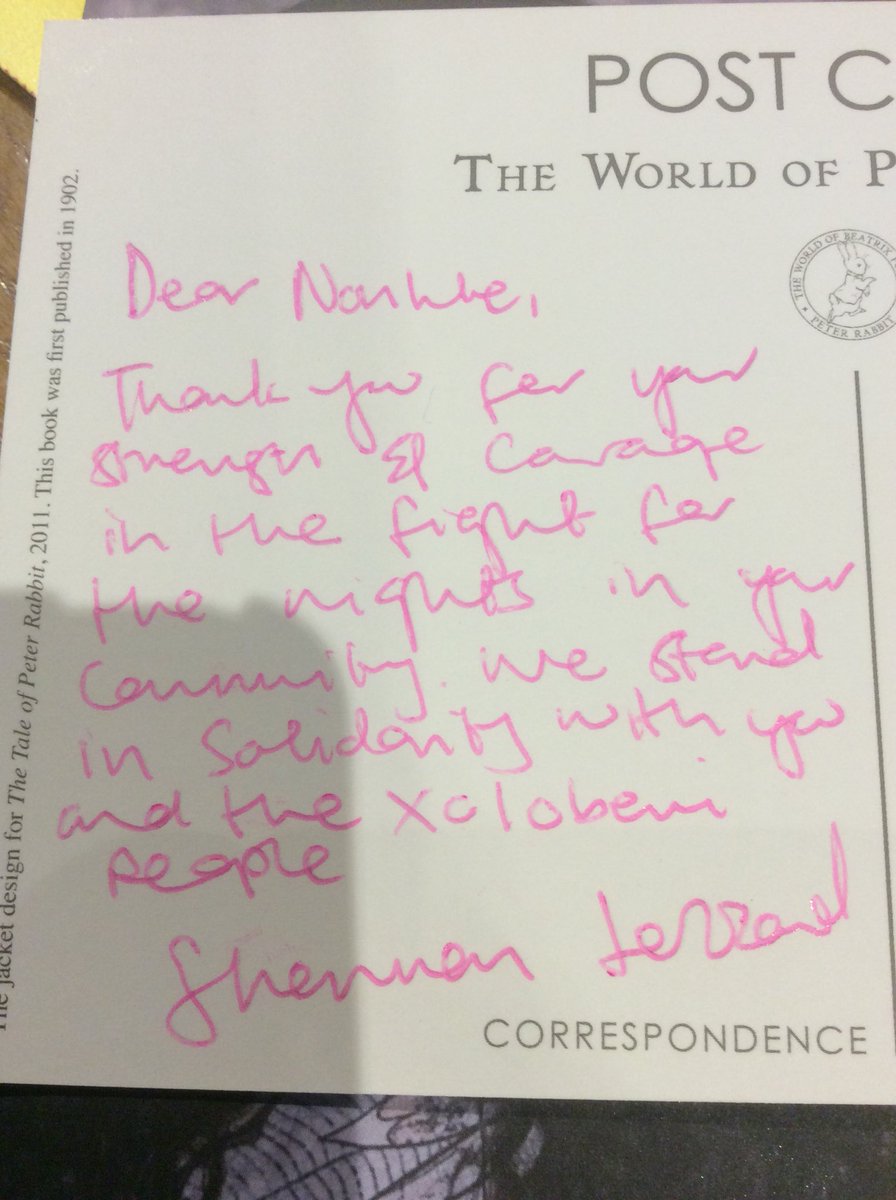 POST C
THE WORLD OF P
THE WORLD OF BEATRIX
PETER RABBIT
The jacket design for The Tale of Peter Rabbit, 2011. This book was first published in 1902.
Dear
Thank you for your
strength & courage
in the fight for
the rights in your
Community. We stand
in Solidarity with you
and the Xolobeni
people
Shannon
CORRESPONDENCE